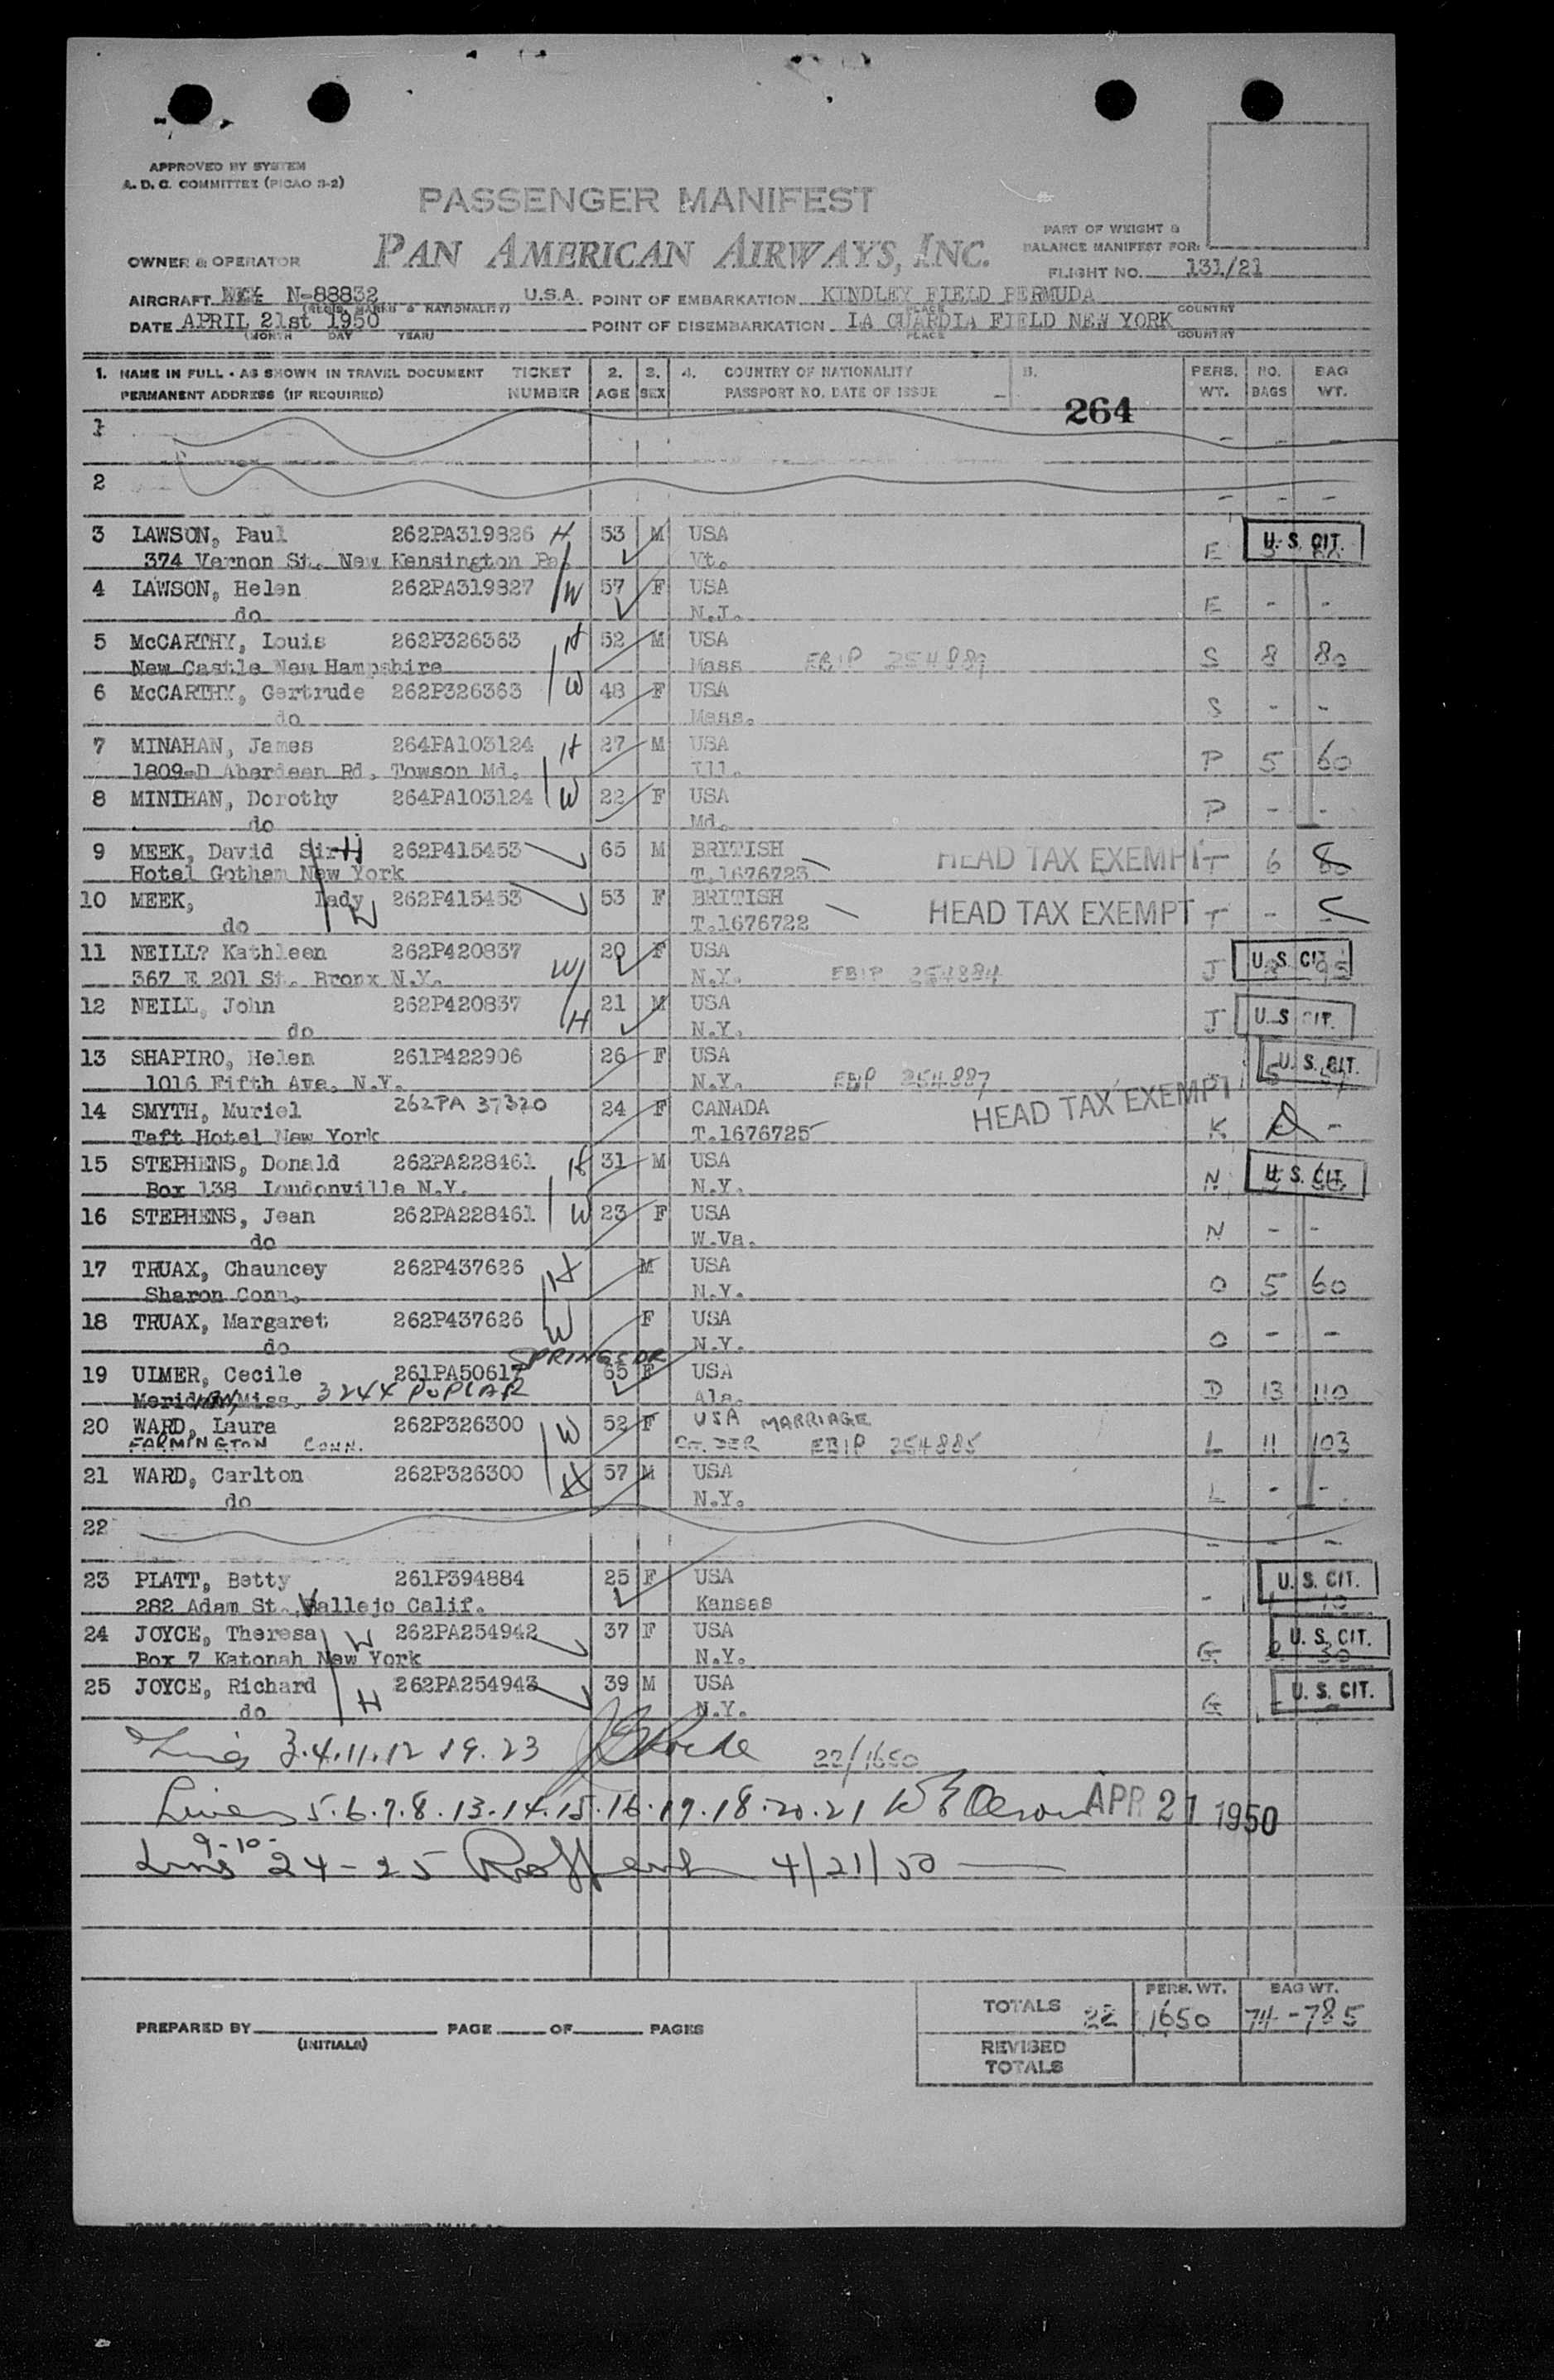 APPROVED BY SYSTEM
A. D. C. COMMITTEE (PICAO 3-2)
PASSENGER MANIFEST
PART OF WEIGHT &
BALANCE MANIFEST FOR:
OWNER & OPERATOR PAN AMERICAN AIRWAYS, INC.
FLIGHT NO. 131/21
AIRCRAFT N-88832 U.S.A. POINT OF EMBARKATION KINDLEY FIELD BERMUDA
(REGIS. MARKS & NATIONALITY) PLACE COUNTRY
DATE APRIL 21st 1950 POINT OF DISEMBARKATION LA GUARDIA FIELD NEW YORK
(MONTH DAY YEAR) PLACE COUNTRY
1. NAME IN FULL - AS SHOWN IN TRAVEL DOCUMENT TICKET 2. 3. 4. COUNTRY OF NATIONALITY PERS. NO. BAG
PERMANENT ADDRESS (IF REQUIRED) NUMBER AGE SEX PASSPORT NO. DATE OF ISSUE WT. BAGS WT.
264
1 - - -
2 - - -
3 LAWSON, Paul 262PA319826 H 53 M USA U. S. CIT.
374 Vernon St. New Kensington Pa. Vt. E
4 LAWSON, Helen 262PA319827 W 57 F USA
do N.J. E - -
5 McCARTHY, Louis 262P326363 H 52 M USA
New Castle New Hampshire Mass EBIP 254889 S 8 80
6 McCARTHY, Gertrude 262P326363 W 48 F USA
do Mass. S - -
7 MINAHAN, James 264PA103124 H 27 M USA
1809-D Aberdeen Rd, Towson Md. Ill. P 5 60
8 MINIHAN, Dorothy 264PA103124 W 22 F USA
do Md. P - -
9 MEEK, David Sir H 262P415453 65 M BRITISH HEAD TAX EXEMPT
Hotel Gotham New York T.1676723 T 6 80
10 MEEK, Lady W 262P415453 53 F BRITISH HEAD TAX EXEMPT
do T.1676722 T - -
11 NEILL? Kathleen 262P420837 W 20 F USA U. S. CIT.
367 E 201 St. Bronx N.Y. N.Y. EBIP 254884 J
12 NEILL, John 262P420837 H 21 M USA U. S. CIT.
do N.Y. J
13 SHAPIRO, Helen 261P422906 26 F USA U. S. CIT.
1016 Fifth Ave. N.Y. N.Y. EBIP 254887
14 SMYTH, Muriel 262PA 37320 24 F CANADA HEAD TAX EXEMPT
Taft Hotel New York T.1676725 K -
15 STEPHENS, Donald 262PA228461 H 31 M USA U. S. CIT.
Box 138 Loudonville N.Y. N.Y. N
16 STEPHENS, Jean 262PA228461 W 23 F USA
do W.Va. N - -
17 TRUAX, Chauncey 262P437626 H M USA
Sharon Conn. N.Y. O 5 60
18 TRUAX, Margaret 262P437626 W F USA
do N.Y. O - -
SPRINGS DR
19 ULMER, Cecile 261PA50617 65 F USA
Meridian, Miss. 3244 POPLAR Ala. D 13 110
20 WARD, Laura 262P326300 W 52 F USA MARRIAGE
FARMINGTON CONN. EBIP 254885 L 11 103
21 WARD, Carlton 262P326300 H 57 M USA
do N.Y. L - -
22 - - -
23 PLATT, Betty 261P394884 25 F USA U. S. CIT.
282 Adam St. Vallejo Calif. Kansas -
24 JOYCE, Theresa W 262PA254942 37 F USA U. S. CIT.
Box 7 Katonah New York N.Y. G 30
25 JOYCE, Richard H 262PA254943 39 M USA U. S. CIT.
do N.Y. G
3.4.11.12 19.23 22/1650
Lines 5.6.7.8.13.14.15.16.17.18.20.21 APR 21 1950
9-10-
Lines 24-25 4/21/50
TOTALS 22 PERS. WT. 1650 BAG WT. 74-785
PREPARED BY PAGE OF PAGES
(INITIALS)
REVISED
TOTALS